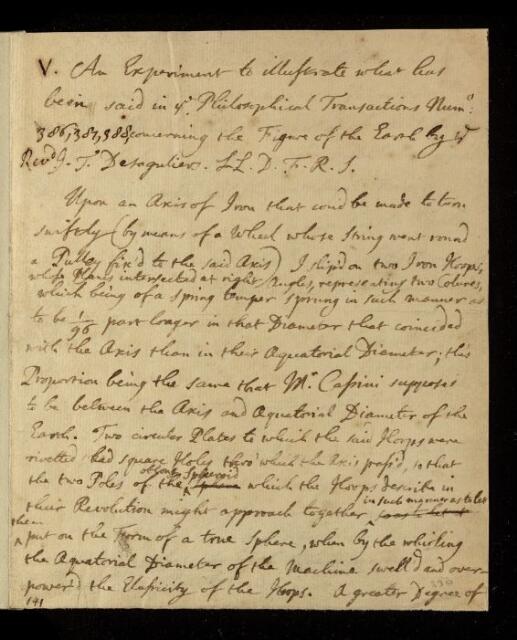 V. An Experiment to illustrate what has
been said in yᵉ Philosophical Transactions Numᵒ:
386, 387, 388, concerning the Figure of the Earth by yᵉ
Revᵈ J. T. Desaguliers. LL. D. F. R. S.
Upon an Axis of Iron that coud be made to turn
swiftly (by means of a Wheel whose String went round
a Pully fix'd to the said Axis) I slip'd on two Iron Hoops,
whose Planes intersected at right Angles, representing two Colures,
which being of a Spring temper sprung in such manner as
to be 1/96 part longer in that Diameter that coincided
with the Axis than in their Aequatorial Diameter; this
Proportion being the same that Mʳ Cassini supposes
to be between the Axis and Aequatorial Diameter of the
Earth. Two circular Plates to which the said Hoops were
rivetted had square Holes thro' which the Axis pass'd, so that
the two Poles of the oblong Spheroid which the Hoops describe in
their Revolution might approach together in such manner as to let
them put on the Form of a true Sphere, when by the whirling
the Aequatorial Diameter of the Machine swell'd and over-
power'd the Elasticity of the Hoops. A greater Degree of
141